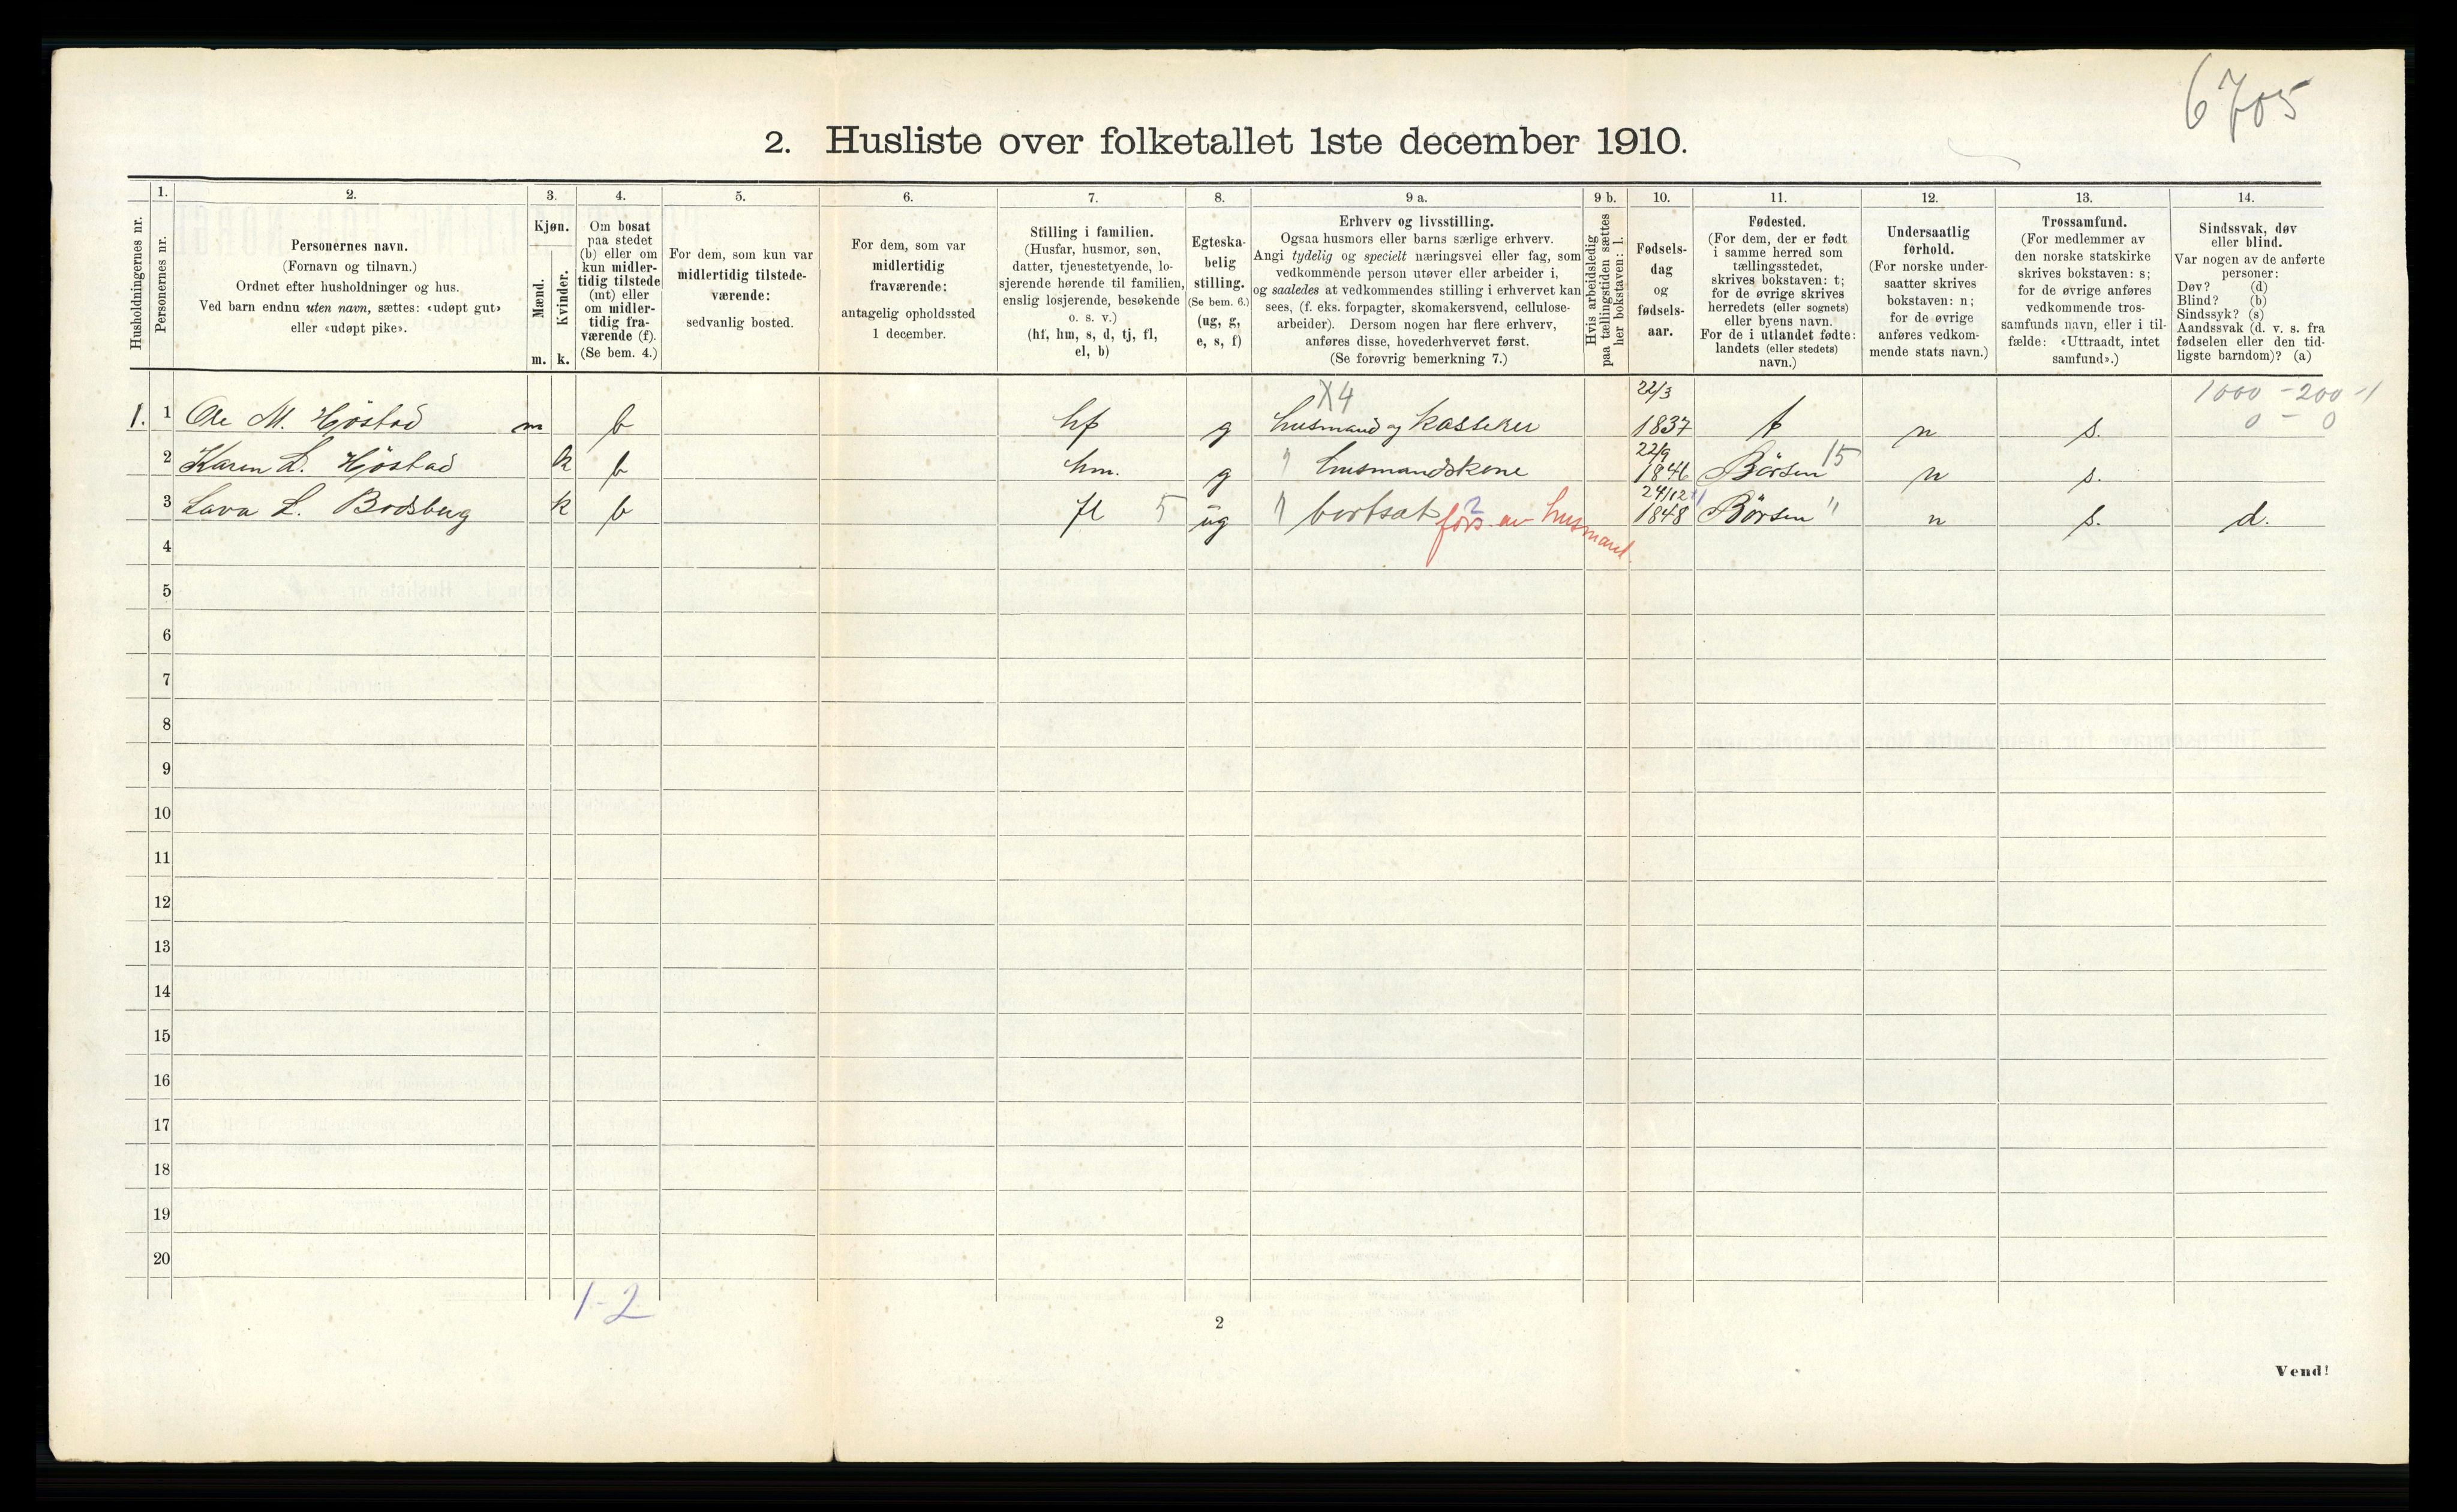 6705
2. Husliste over folketallet 1ste december 1910.
Husholdningernes nr.
1.
Personernes nr.
2.
Personernes navn.
(Fornavn og tilnavn.)
Ordnet efter husholdninger og hus.
Ved barn endnu uten navn, sættes: «udøpt gut»
eller «udøpt pike».
3.
Kjøn.
Mænd.
m.
Kvinder.
k.
4.
Om bosat
paa stedet
(b) eller om
kun midler-
tidig tilstede
(mt) eller
om midler-
tidig fra-
værende (f).
(Se bem. 4.)
5.
For dem, som kun var
midlertidig tilstede-
værende:
sedvanlig bosted.
6.
For dem, som var
midlertidig
fraværende:
antagelig opholdssted
1 december.
7.
Stilling i familien.
(Husfar, husmor, søn,
datter, tjenestetyende, lo-
sjerende hørende til familien,
enslig losjerende, besøkende
o. s. v.)
(hf, hm, s, d, tj, fl,
el, b)
8.
Egteska-
belig
stilling.
(Se bem. 6.)
(ug, g,
e, s, f)
9 a.
Erhverv og livsstilling.
Ogsaa husmors eller barns særlige erhverv.
Angi tydelig og specielt næringsvei eller fag, som
vedkommende person utøver eller arbeider i,
og saaledes at vedkommendes stilling i erhvervet kan
sees, (f. eks. forpagter, skomakersvend, cellulose-
arbeider). Dersom nogen har flere erhverv,
anføres disse, hovederhvervet først.
(Se forøvrig bemerkning 7.)
9 b.
Hvis arbeidsledig
paa tællingstiden sættes
her bokstaven: l.
10.
Fødsels-
dag
og
fødsels-
aar.
11.
Fødested.
(For dem, der er født
i samme herred som
tællingsstedet,
skrives bokstaven: t;
for de øvrige skrives
herredets (eller sognets)
eller byens navn.
For de i utlandet fødte:
landets (eller stedets)
navn.)
12.
Undersaatlig
forhold.
(For norske under-
saatter skrives
bokstaven: n;
for de øvrige
anføres vedkom-
mende stats navn.)
13.
Trossamfund.
(For medlemmer av
den norske statskirke
skrives bokstaven: s;
for de øvrige anføres
vedkommende tros-
samfunds navn, eller i til-
fælde: «Uttraadt, intet
samfund».)
14.
Sindssvak, døv
eller blind.
Var nogen av de anførte
personer:
Døv? (d)
Blind? (b)
Sindssyk? (s)
Aandssvak (d. v. s. fra
fødselen eller den tid-
ligste barndom)? (a)
X4 22/3 1000 - 200 - 1
0 - 0
1. 1 Ole M. Höstad m b hf g husmand og Kasserer 1837 t n s.
2 Karen L. Höstad k b hm. g " husmandskone 22/9 1846 Börsen 15 n s.
3 Lava L. Bodsberg k b fl 5 ug " bortsat 2 fors. av husmand. 24/12 1848 Börsen " n s. d.
4
5
6
7
8
9
10
11
12
13
14
15
16
17
18
19
20
1-2
2
Vend!